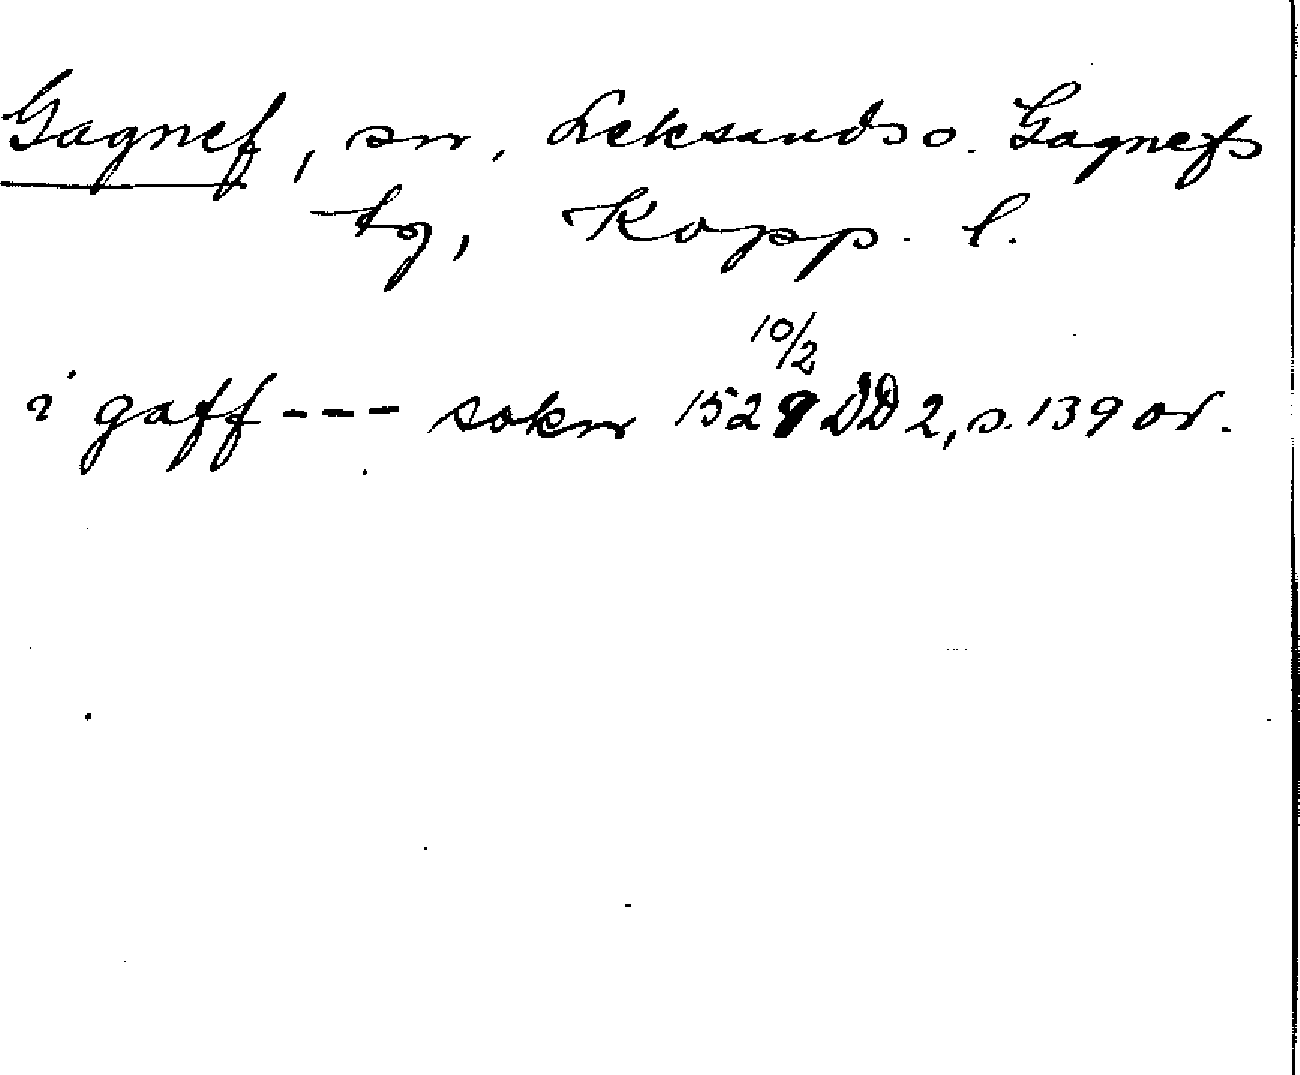 Gagnef, sn, Leksands o. Gagnefs
tg, Kopp. l.
10/2
i gaff --- sokn 1529 DD 2, s. 139 or.